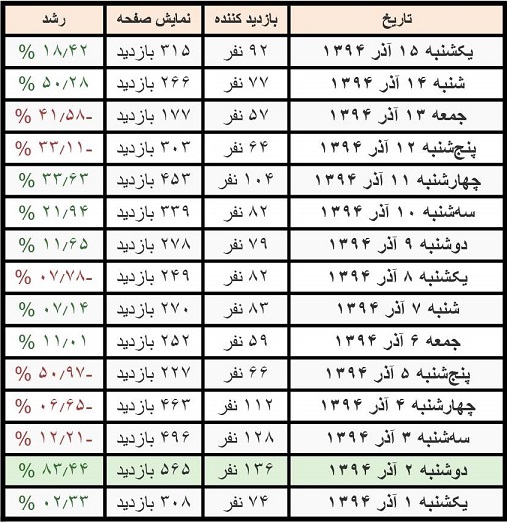 تاریخ بازدید کننده نمایش صفحه رشد
یکشنبه ۱۵ آذر ۱۳۹۴ ۹۲ نفر ۳۱۵ بازدید ۱۸٫۴۲ %
شنبه ۱۴ آذر ۱۳۹۴ ۷۷ نفر ۲۶۶ بازدید ۵۰٫۲۸ %
جمعه ۱۳ آذر ۱۳۹۴ ۵۷ نفر ۱۷۷ بازدید -۴۱٫۵۸ %
پنج‌شنبه ۱۲ آذر ۱۳۹۴ ۶۴ نفر ۳۰۳ بازدید -۳۳٫۱۱ %
چهارشنبه ۱۱ آذر ۱۳۹۴ ۱۰۴ نفر ۴۵۳ بازدید ۳۳٫۶۳ %
سه‌شنبه ۱۰ آذر ۱۳۹۴ ۸۲ نفر ۳۳۹ بازدید ۲۱٫۹۴ %
دوشنبه ۹ آذر ۱۳۹۴ ۷۹ نفر ۲۷۸ بازدید ۱۱٫۶۵ %
یکشنبه ۸ آذر ۱۳۹۴ ۸۲ نفر ۲۴۹ بازدید -۰۷٫۷۸ %
شنبه ۷ آذر ۱۳۹۴ ۸۳ نفر ۲۷۰ بازدید ۰۷٫۱۴ %
جمعه ۶ آذر ۱۳۹۴ ۵۹ نفر ۲۵۲ بازدید ۱۱٫۰۱ %
پنج‌شنبه ۵ آذر ۱۳۹۴ ۶۶ نفر ۲۲۷ بازدید -۵۰٫۹۷ %
چهارشنبه ۴ آذر ۱۳۹۴ ۱۱۲ نفر ۴۶۳ بازدید -۰۶٫۶۵ %
سه‌شنبه ۳ آذر ۱۳۹۴ ۱۲۸ نفر ۴۹۶ بازدید -۱۲٫۲۱ %
دوشنبه ۲ آذر ۱۳۹۴ ۱۳۶ نفر ۵۶۵ بازدید ۸۳٫۴۴ %
یکشنبه ۱ آذر ۱۳۹۴ ۷۴ نفر ۳۰۸ بازدید ۰۲٫۳۳ %